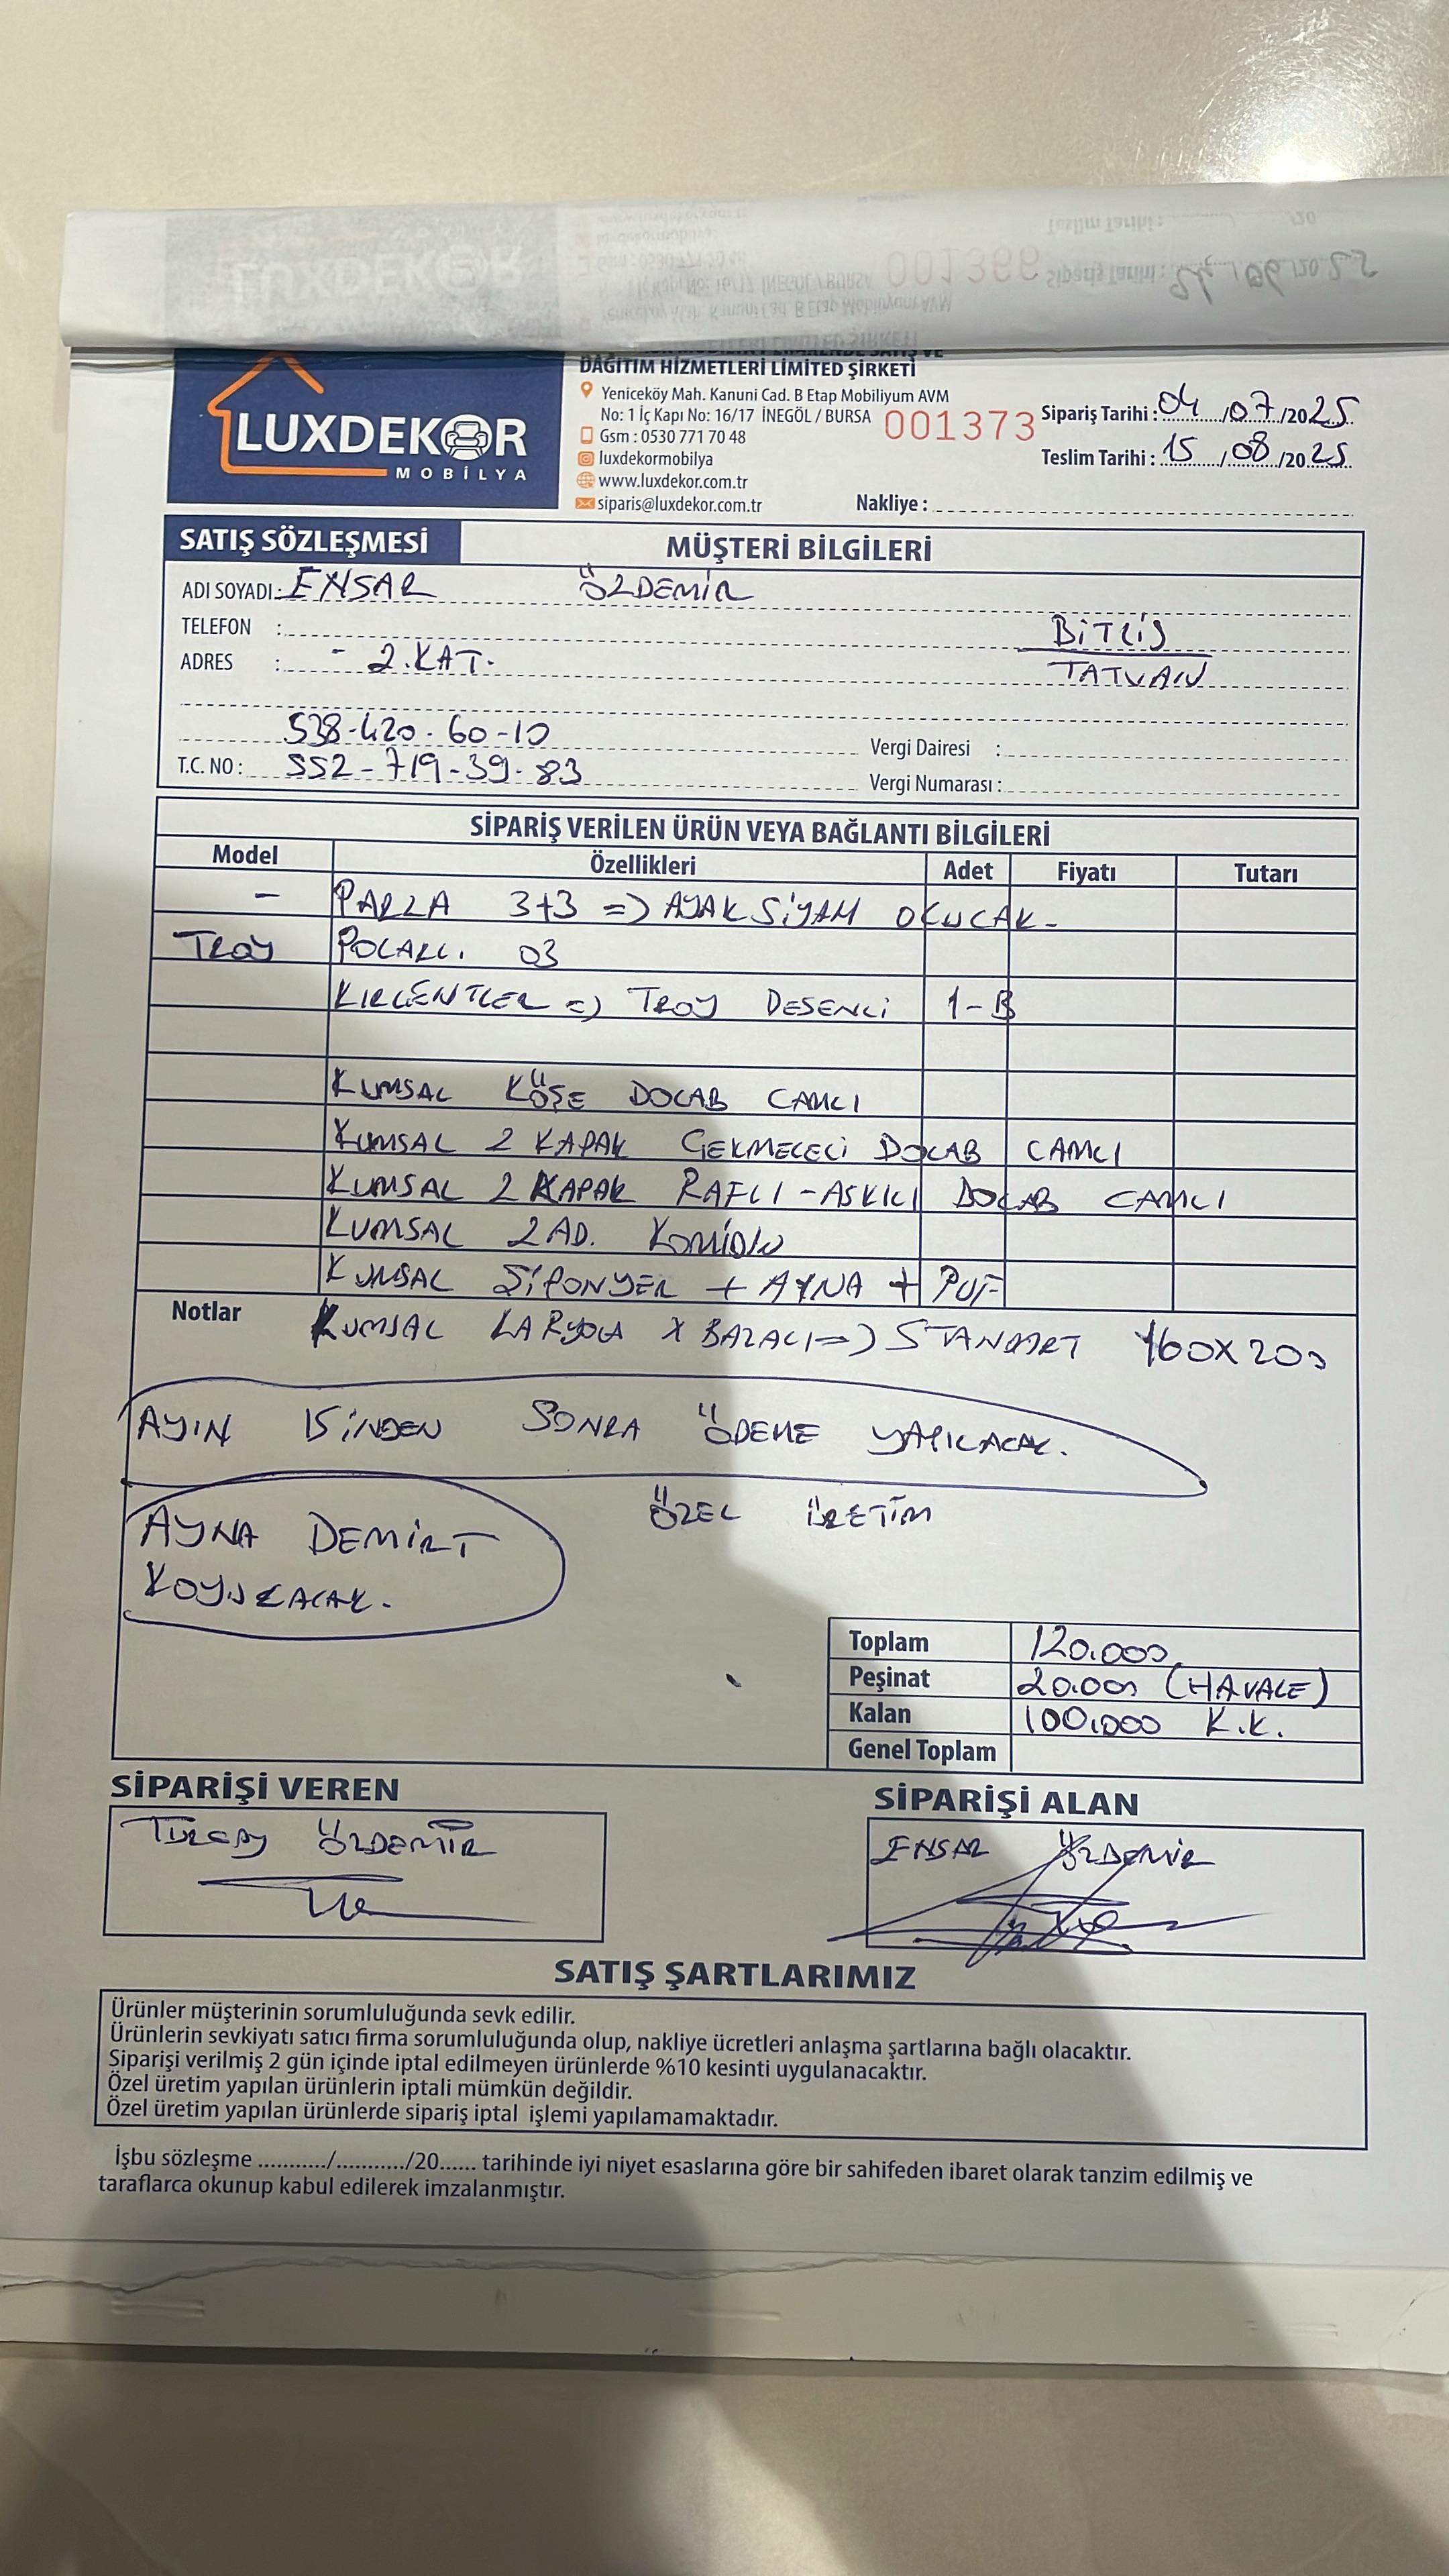 DAĞITIM HİZMETLERİ LİMİTED ŞİRKETİ
LUXDEKOR
MOBİLYA
Yeniceköy Mah. Kanuni Cad. B Etap Mobiliyum AVM
No: 1 İç Kapı No: 16/17 İNEGÖL / BURSA
Gsm : 0530 771 70 48
luxdekormobilya
www.luxdekor.com.tr
siparis@luxdekor.com.tr
001373
Sipariş Tarihi : 04/07/2025
Teslim Tarihi : 15/08/2025
Nakliye :
SATIŞ SÖZLEŞMESİ
MÜŞTERİ BİLGİLERİ
ADI SOYADI: ENSAR ÖZDEMİR
TELEFON : BİTLİS
ADRES : - 2.KAT. TATVAN
538-420-60-10 Vergi Dairesi :
T.C. NO : 552-719-39-83 Vergi Numarası :
SİPARİŞ VERİLEN ÜRÜN VEYA BAĞLANTI BİLGİLERİ
Model Özellikleri Adet Fiyatı Tutarı
- PARLA 3+3 => AYAK SİYAH OLUCAK-
TROY POLARLI. 03
KIRLENTLER => TROY DESENLİ 1-B
KUMSAL KÖŞE DOLAB CAMLI
KUMSAL 2 KAPAK ÇEKMECELİ DOLAB CAMLI
KUMSAL 2 KAPAK RAFLI-ASKILI DOLAB CAMLI
KUMSAL 2 AD. KOMİDİN
KUMSAL ŞİFONYER + AYNA + PUF
Notlar KUMSAL KARYOLA X BAZALI => STANDART 160X200
AYIN 15İNDEN SONRA ÖDEME YAPILACAK.
ÖZEL ÜRETİM
AYNA DEMİRT
KOYULACAK.
Toplam 120.000
Peşinat 20.000 (HAVALE)
Kalan 100.000 K.K.
Genel Toplam
SİPARİŞİ VEREN
SİPARİŞİ ALAN
ÖZDEMİR
ENSAR ÖZDEMİR
SATIŞ ŞARTLARIMIZ
Ürünler müşterinin sorumluluğunda sevk edilir.
Ürünlerin sevkiyatı satıcı firma sorumluluğunda olup, nakliye ücretleri anlaşma şartlarına bağlı olacaktır.
Siparişi verilmiş 2 gün içinde iptal edilmeyen ürünlerde %10 kesinti uygulanacaktır.
Özel üretim yapılan ürünlerin iptali mümkün değildir.
Özel üretim yapılan ürünlerde sipariş iptal işlemi yapılamamaktadır.
İşbu sözleşme .........../.........../20...... tarihinde iyi niyet esaslarına göre bir sahifeden ibaret olarak tanzim edilmiş ve
taraflarca okunup kabul edilerek imzalanmıştır.